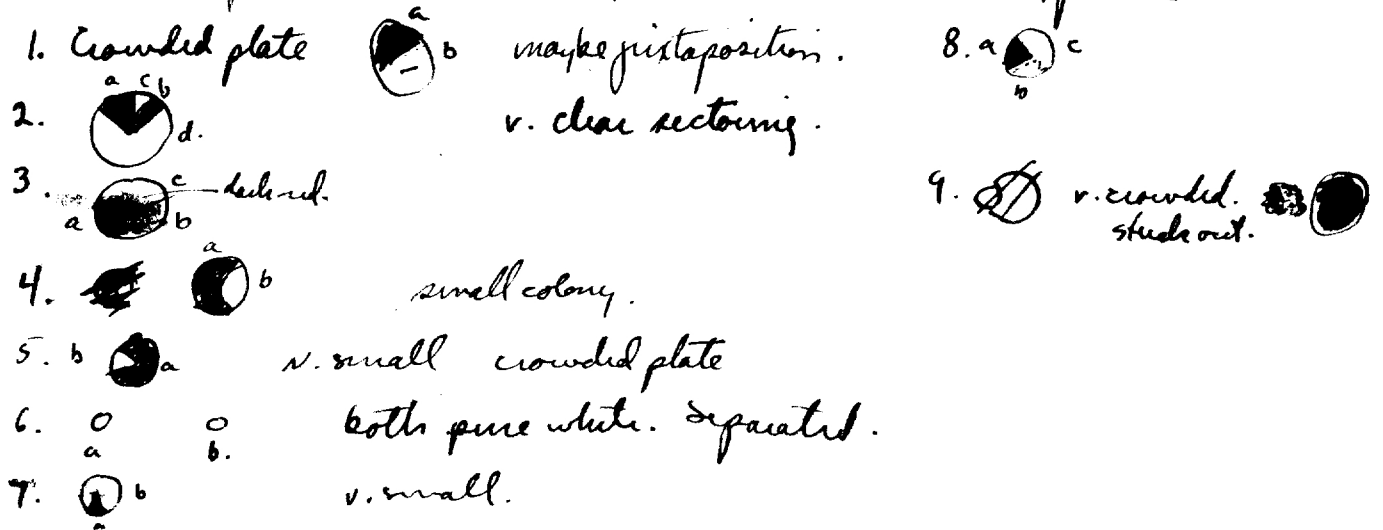 1. Crowded plate a b maybe juxtaposition.
2. a c b d. v. clear sectoring.
3. a c b dark red.
4. a b small colony.
5. b a v. small crowded plate
6. a b. both pure white. Separated.
7. a b v. small.
8. a b c
9. v. crowded.